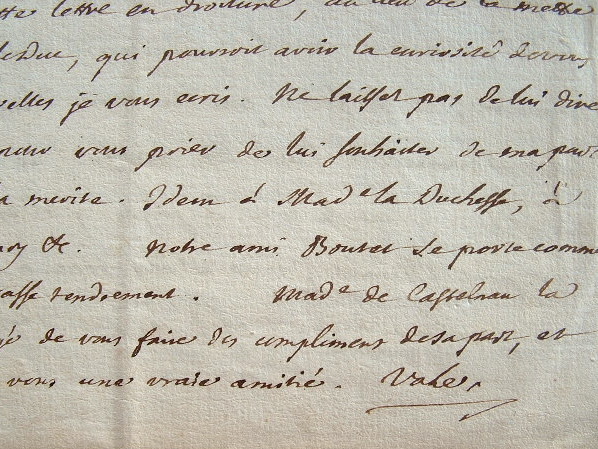 tte lettre en droiture, au lieu de la mettre
leDuc, qui pourroit avoir la curiosité de vous
velles je vous ecris. Ne laissez pas de lui dire
pour vous prier de lui souhaiter de ma part
merite. Idem à Mad.e la Duchesse, à
&c. Notre ami Boutet se porte comme
asse tendrement. Mad.e de Castelnau la
é de vous faire des compliments de sa part, et
vous une vraie amitié. Vale.